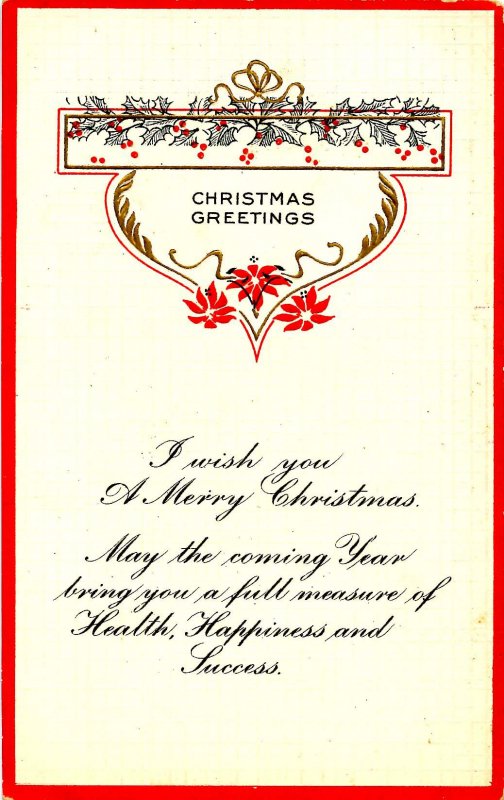 CHRISTMAS
GREETINGS
I wish you
A Merry Christmas.
May the coming Year
bring you a full measure of
Health, Happiness and
Success.